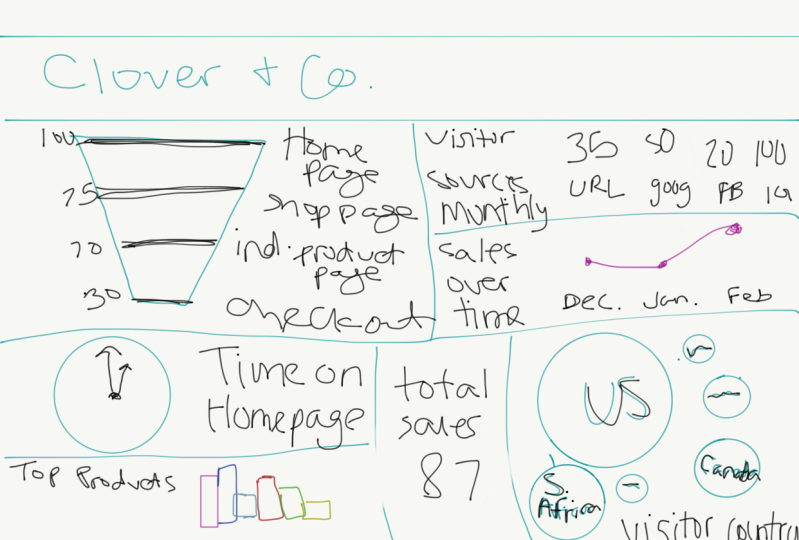 Clover + Co.
100
Home
page
75
shop page
70
indi. product
page
30
checkout
Visitor
sources
Monthly
35 50 20 100
URL goog FB IG
sales
over
time
Dec. Jan. Feb
Time on
Homepage
Top Products
total
sales
87
US
Canada
S.
Africa
visitor country